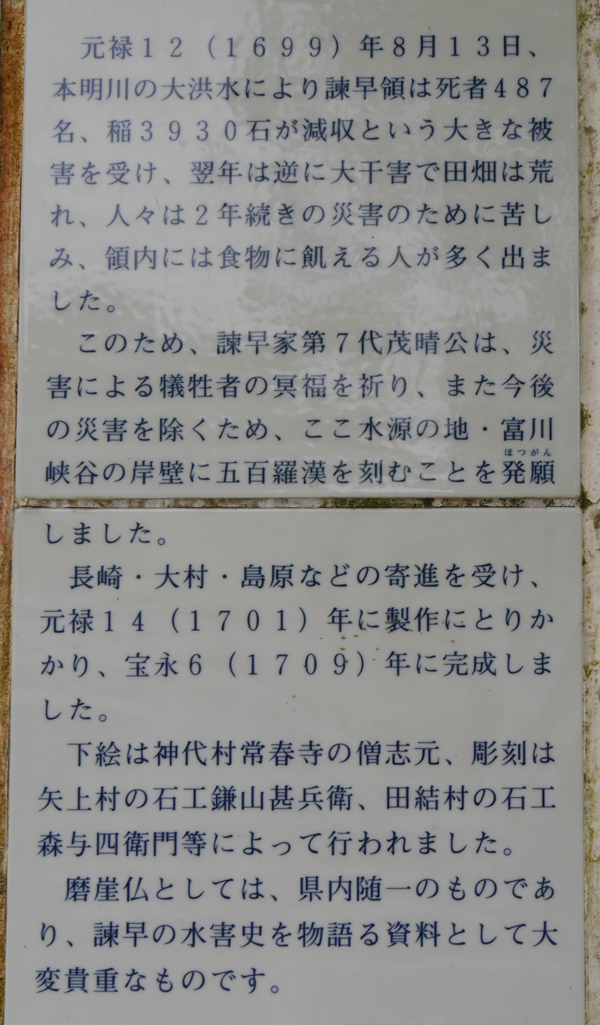 元禄１２（１６９９）年８月１３日、
本明川の大洪水により諫早領は死者４８７
名、稲３９３０石が減収という大きな被
害を受け、翌年は逆に大干害で田畑は荒
れ、人々は２年続きの災害のために苦し
み、領内には食物に飢える人が多く出ま
した。
このため、諫早家第７代茂晴公は、災
害による犠牲者の冥福を祈り、また今後
の災害を除くため、ここ水源の地・富川
ほつがん
峡谷の岸壁に五百羅漢を刻むことを発願
しました。
長崎・大村・島原などの寄進を受け、
元禄１４（１７０１）年に製作にとりか
かり、宝永６（１７０９）年に完成しま
した。
下絵は神代村常春寺の僧志元、彫刻は
矢上村の石工鎌山甚兵衛、田結村の石工
森与四衛門等によって行われました。
磨崖仏としては、県内随一のものであ
り、諫早の水害史を物語る資料として大
変貴重なものです。